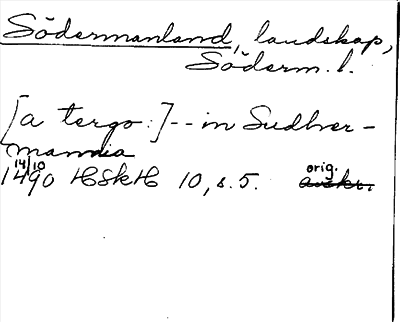 Södermanland, landskap,
Söderm. l.
[a tergo:] -- in Sudher-
mannia
14/10
1490 HSkH 10, s. 5. orig.
avskr.